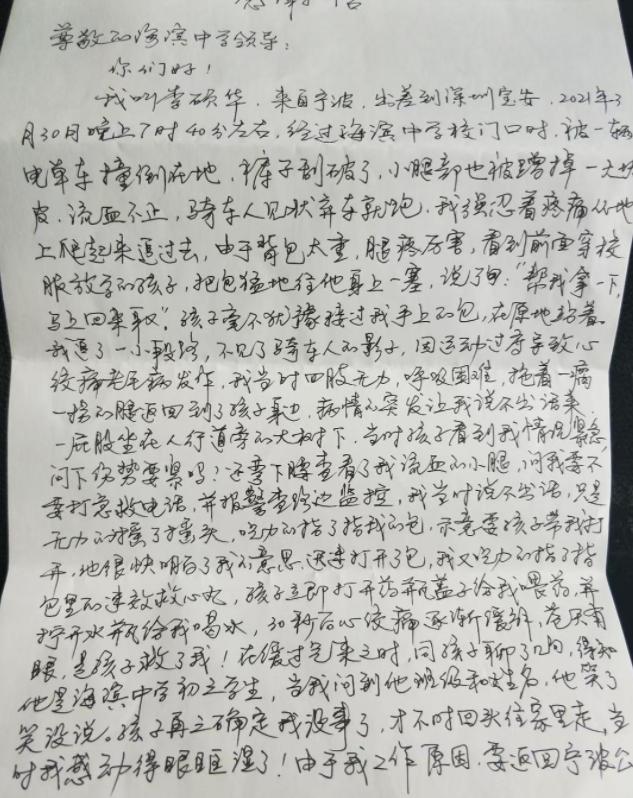 感谢信
尊敬的海滨中学领导:
你们好!
我叫李硕华,来自宁波,出差到深圳宝安,2021年3
月30日晚上7时40分左右,经过海滨中学校门口时,被一辆
电单车撞倒在地,裤子刮破了,小腿部也被蹭掉一大块
皮,流血不止,骑车人见状弃车就跑,我强忍着疼痛从地
上爬起来追过去,由于背包太重,腿疼厉害,看到前面穿校
服放学的孩子,把包猛地往他身上一塞,说了声:“帮我拿一下,
马上回来取”。孩子毫不犹豫接过我手上的包,在原地站着
我追了一小段路,不见了骑车人的影子,因运动过度导致心
绞痛老毛病发作,我当时四肢无力,呼吸困难,拖着一瘸
一拐的腿返回到了孩子身边,病情的突发让我说不出话来,
一屁股坐在人行道旁的大树下,当时孩子看到我情况紧急,
问下伤势要紧吗?还弯下腰查看了我流血的小腿,问我要不
要打急救电话,并报警查路边监控,我当时说不出话,只是
无力的摇了摇头,吃力的指了指我的包,示意要孩子帮我打
开,他很快明白了我的意思,迅速打开了包,我又吃力的指了指
包里的速效救心丸,孩子立即打开药瓶盖子给我喂药,并
拧开水瓶给我喝水,30秒后心绞痛逐渐缓解,苍天有
眼,是孩子救了我!在缓过气来之时,同孩子聊了几句,得知
他是海滨中学初三学生,当我问到他班级和姓名,他笑了
笑没说。孩子再三确定我没事了,才不时回头往家里走,当
时我感动得眼眶湿了!由于我工作原因,要返回宁波公